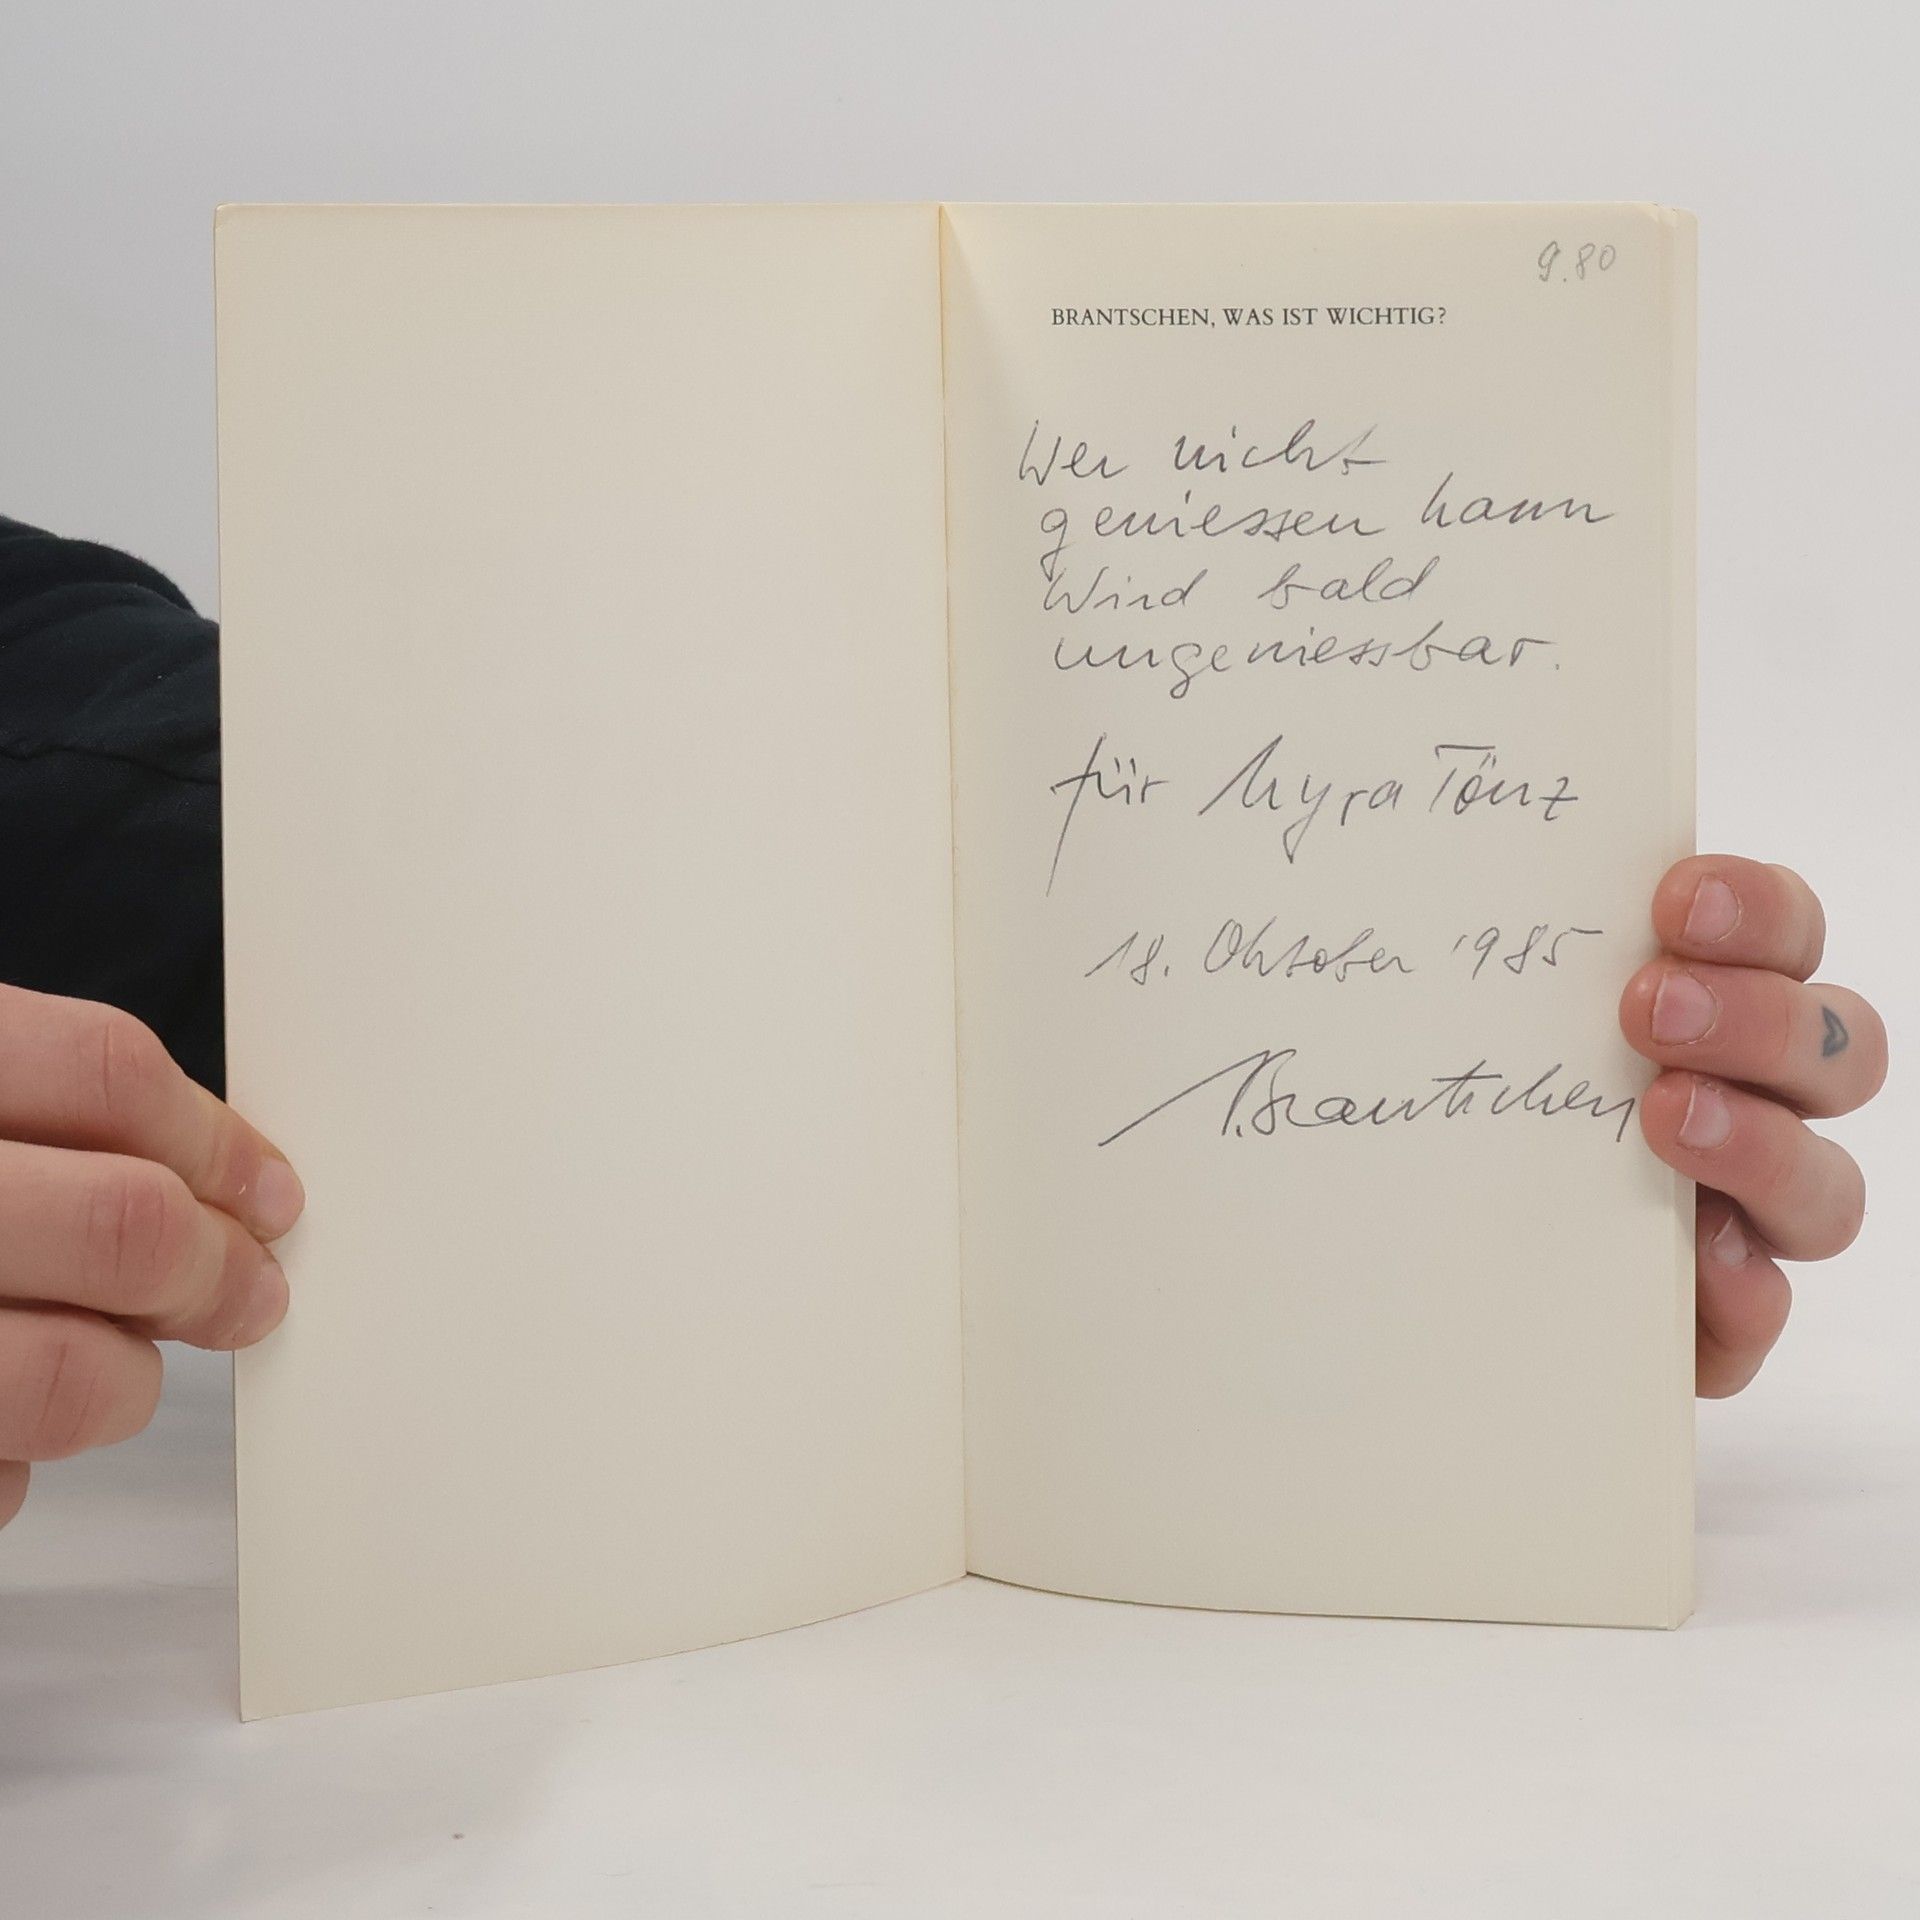 9.80
BRANTSCHEN, WAS IST WICHTIG?
Wer nicht
geniessen kann
wird bald
ungeniessbar.
für Myra Tönz
18. Oktober 1985
Brantschen